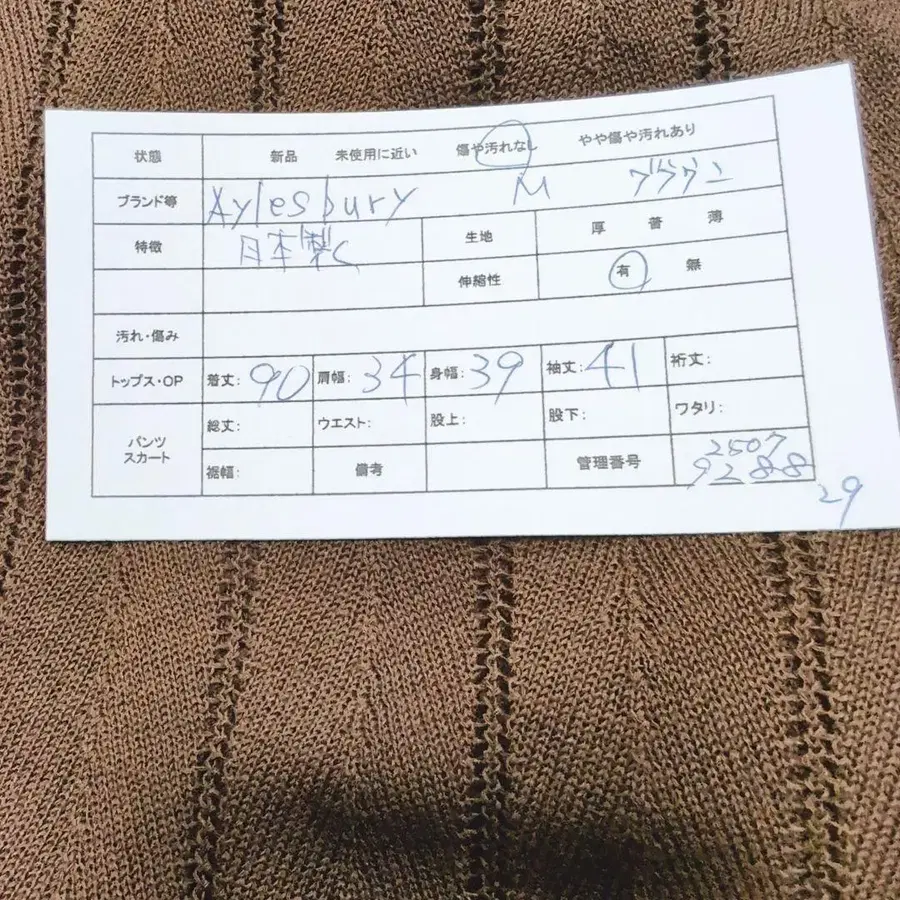 状態 新品 未使用に近い 傷や汚れなし やや傷や汚れあり
ブランド等 Aylesbury M ブラウン
特徴 日本製 生地 厚 普 薄
伸縮性 有 無
汚れ・傷み
トップス・OP 着丈: 90 肩幅: 34 身幅: 39 袖丈: 41 裄丈:
パンツ スカート 総丈: ウエスト: 股上: 股下: ワタリ:
裾幅: 備考 管理番号 2507
9288
29